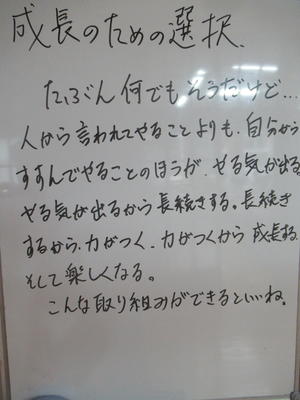 成長のための選択、
たぶん何でもそうだけど…
人から言われてやることよりも、自分から
すすんでやることのほうが、やる気が出る
やる気が出るから長続きする。長続き
するから、力がつく、力がつくから成長する
そして楽しくなる。
こんな取り組みができるといいね。